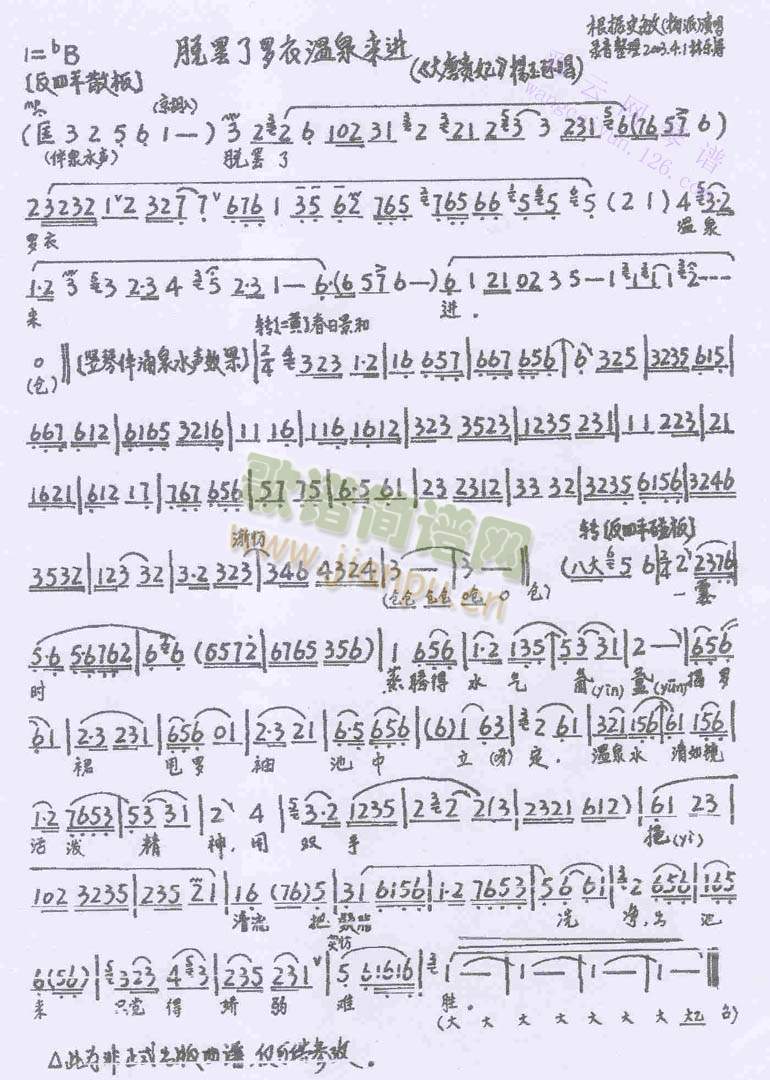 脱罢了罗衣温泉来进
(《大唐贵妃》杨玉环唱)
根据史敏(梅派)演唱
录音整理2003.4.1林乐舞
1=bB
[反四平散板]
(京胡入)
(匡 3 2 5 6 1 —) 3 2 2 6 102 31 2 2 21 2 5 3 231 6(76 57 6)
(伴泉水声)
脱罢了
23232 1 2 327 7 676 1 35 62 765 76566 5 5 5 (2 1) 4 3·2
罗衣 温泉
1·2 3 3 2·3 4 5 2·3 1 — 6·(6 57 6 —) 6 1 21 02 3 5 — 1 1 1 2---
来 进.
转[二黄]春日景和
0 ‖ [竖琴伴涌泉水声效果] 2/4 323 1·2|16 657|667 656|6 325|3235 615|
(仓)
667 612|6165 3216|11 16|116 1612|323 3523|1235 231|11 223|21
1621|612 17|767 656|57 75|6·5 61|23 2312|33 32|3235 6156|3246
渐慢
转[反四平碰板]
3532|123 32|3·2 323|346 4324|3 —|3 —‖(八大 5 6|2/4 2 2376|
(仓仓 仓仓 0仓 0 仓)
一霎
5·6 56762|6 6 (6572|6765 356)|1 656|1·2 135|53 31|2 —|656
时 蒸腾得 水气 氤(yīn) 氲(yūn) 揭罗
61|2·3 231|656 01|2·3 21|6·5 656|(6) 1 63|2 61|321 156|61 156|
裙 甩罗 袖 池中 立(呀)定. 温泉水 清如镜
1·2 7653|53 31|2 4|3·2 1235|2 2 2(3|2321 612)|61 23|
活泼 精神, 用双手 挹(yì)
102 3235|235 21|16 (76)5|31 6156|1·2 7653|5 6 61|2 656|165
清流 把 凝脂 洗净, 出池
6(56)|323 4 3|235 231|5 61616|1 —|1 —|1 —|1 —‖
来 只觉得 娇弱 难 胜.
(大 大 大 大 大 大 大 大乙 台)
△此为非正式出版曲谱,仅可供参考。
歌谱简谱网
www.jianpu.cn